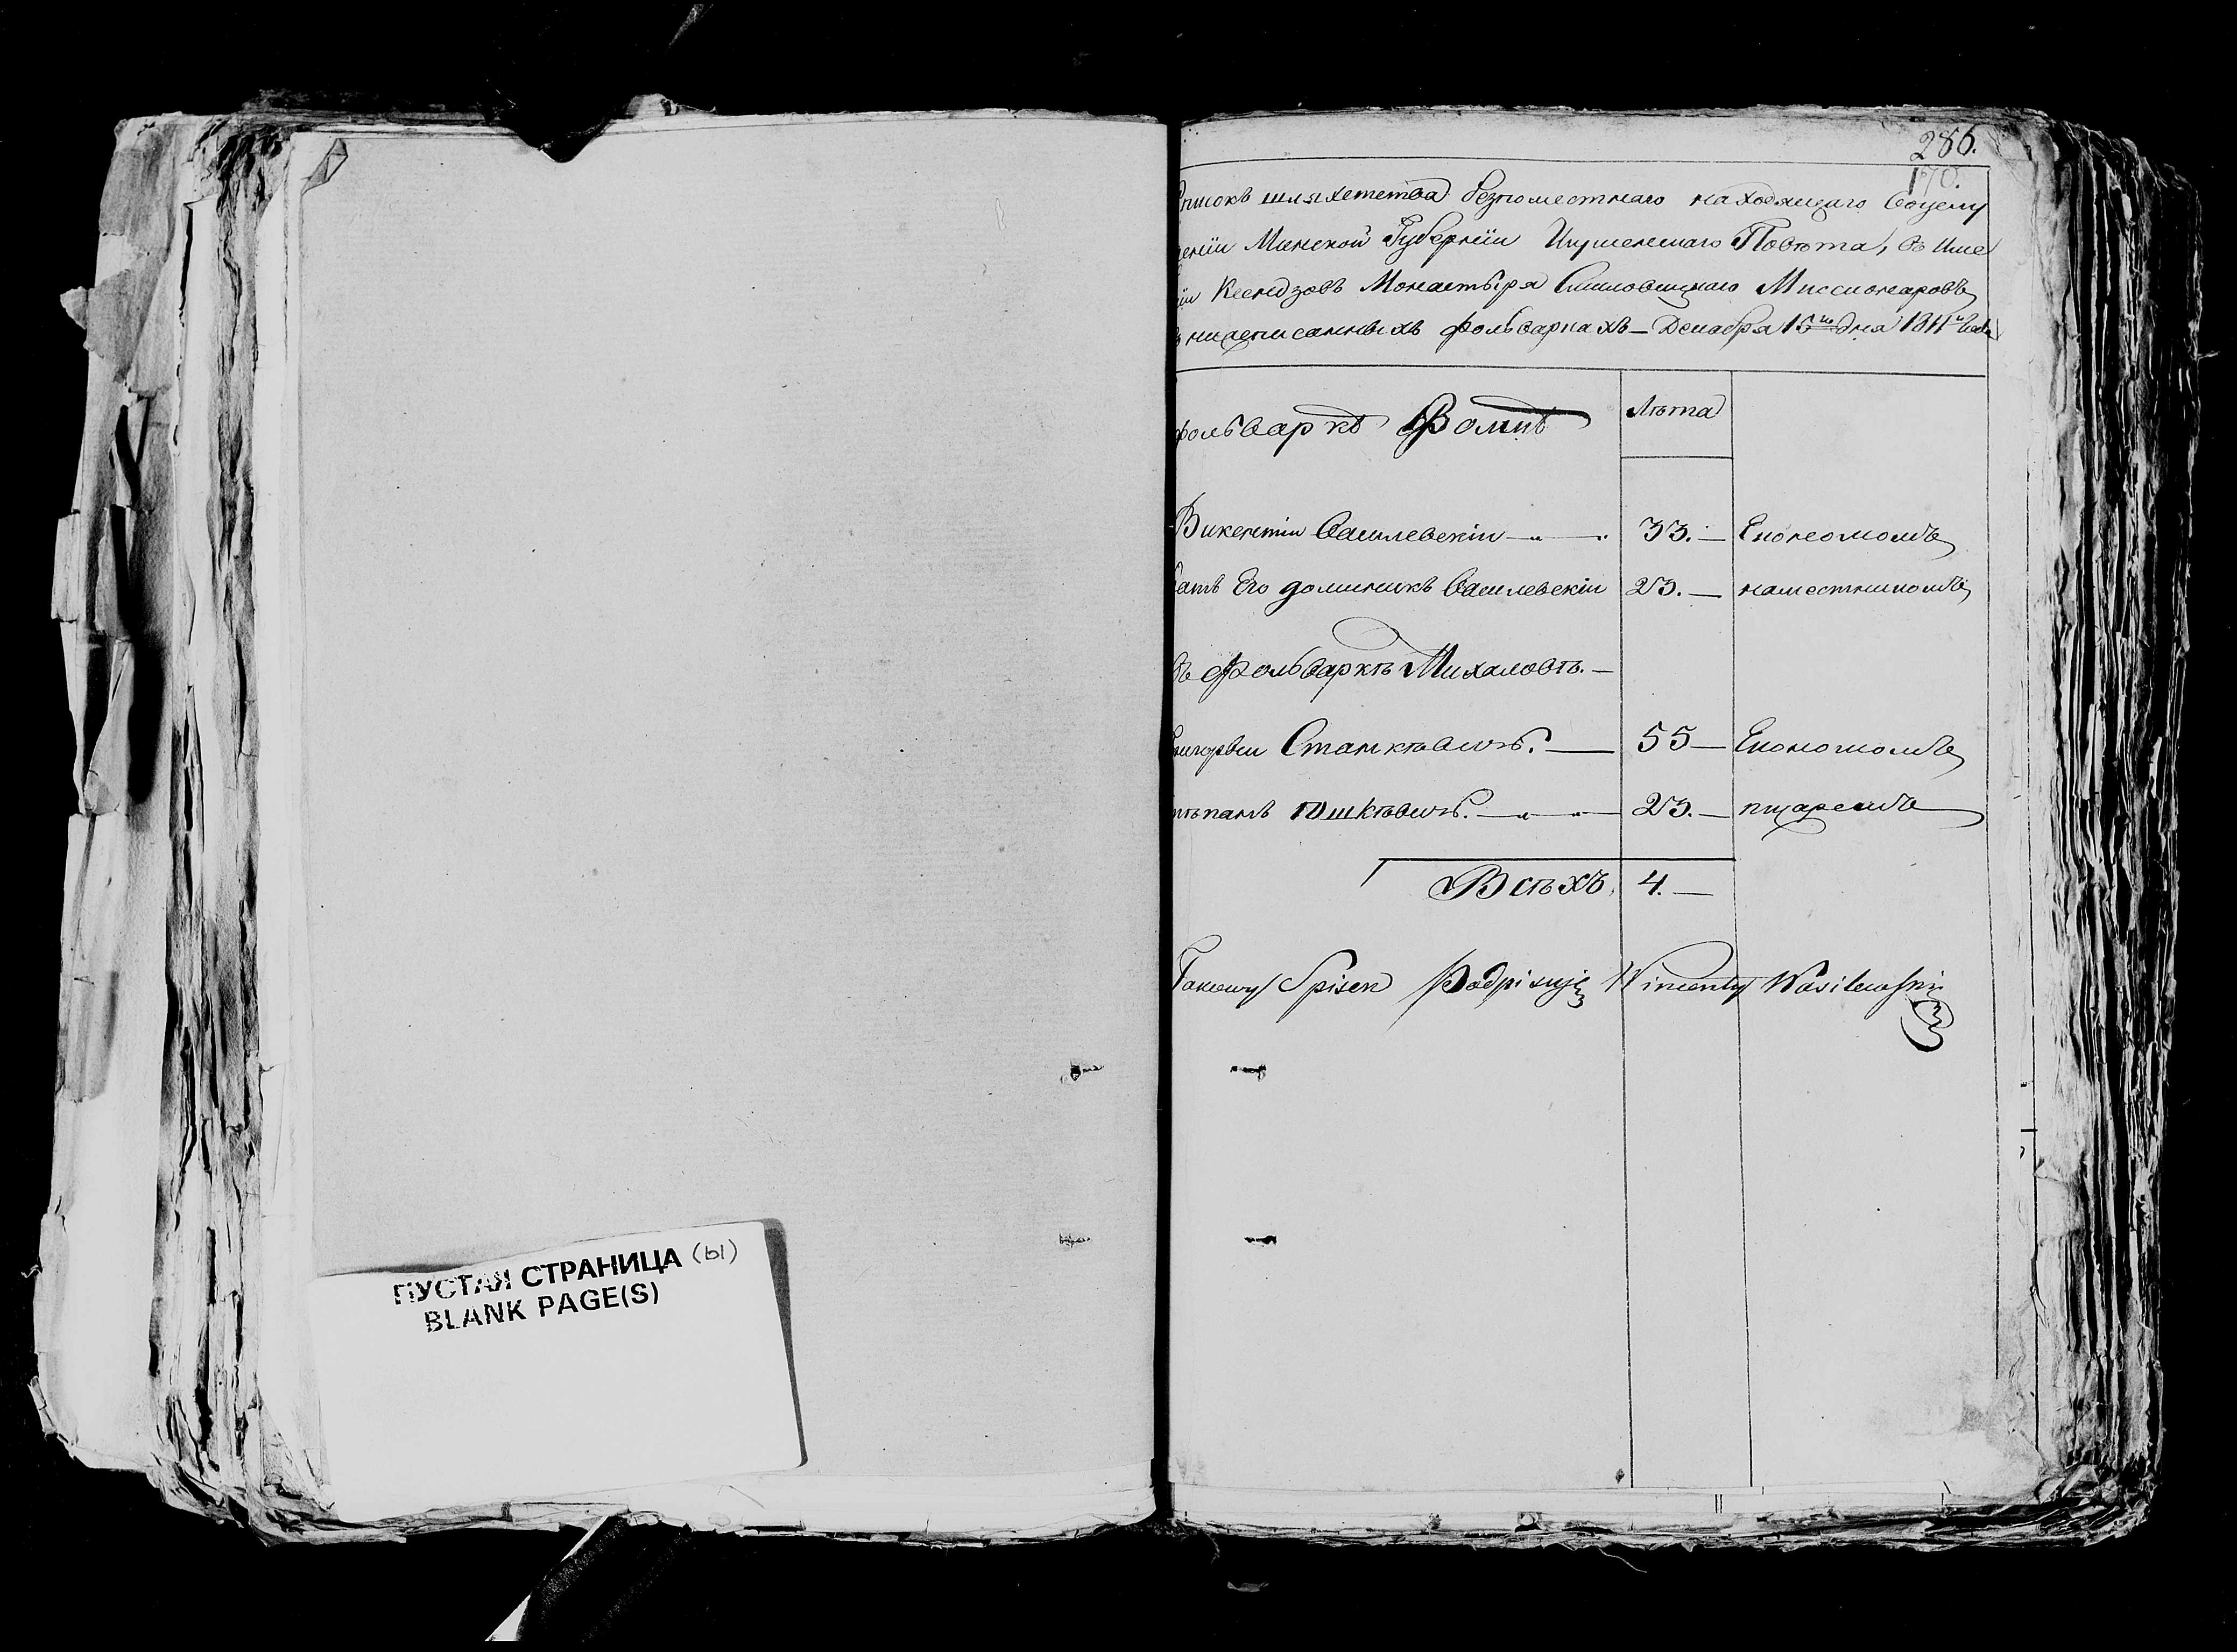 ПУСТАЯ СТРАНИЦА (ы)
BLANK PAGE(S)
286.
170.
Списокъ шляхетства безпоместнаго находящаго
Минской Губерніи Игуменскаго Повѣта, въ Име
Ксендзовъ Монастыря Смиловицкаго Миссионаровъ,
нижеписанныхъ фольваркахъ — Декабря 15го дня 1811 Года
фольваркъ Волмѣ
Лѣта
Викентіи Василевскіи 33. — Економомъ
Его доминикъ Василевскіи 23. — наместникомъ,
въ Фольваркѣ Михаловѣ. —
Станкѣвичъ. — 55 — Економомъ
Юшкѣвичъ. — 23. — пищаремъ
Всѣхъ 4. —
Takowy Spisek Podpisuję Wincenty Wasilewski